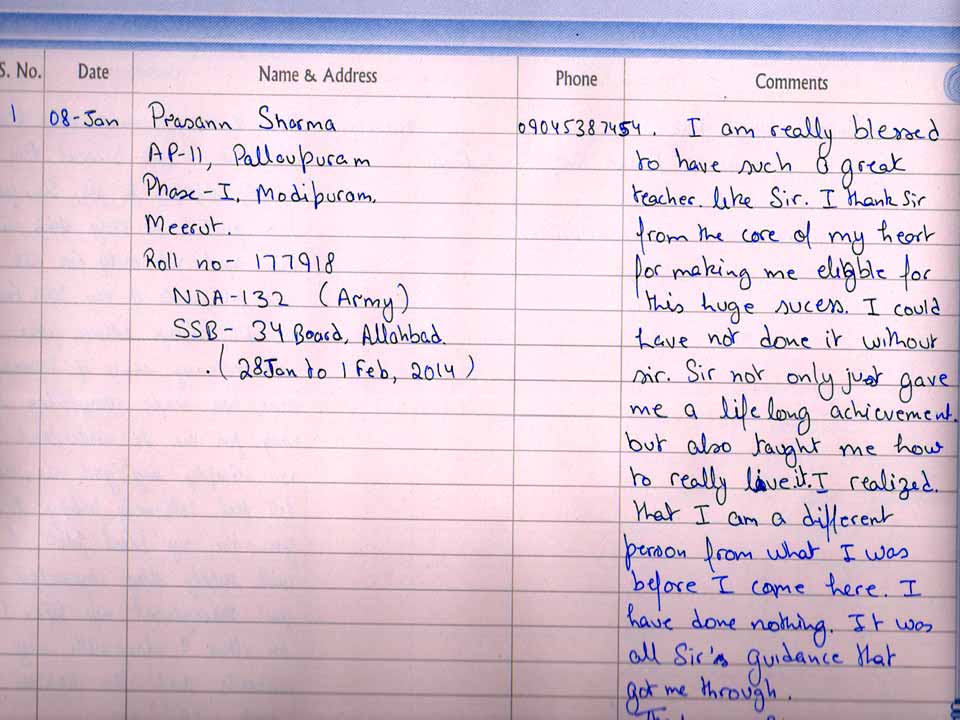 S. No. Date Name & Address Phone Comments
1 08-Jan Prasann Sharma 09045387454. I am really blessed
AP-11, Pallavpuram to have such a great
Phase-I, Modipuram, teacher. like Sir. I thank Sir
Meerut. from the core of my heart
Roll no- 177918 for making me eligible for
NDA-132 (Army) this huge sucess. I could
SSB- 34 Board, Allahbad. have not done it without
.(28Jan to 1 Feb, 2014) sir. Sir not only just gave
me a life long achievement.
but also taught me how
to really live.it.I realized.
that I am a different
person from what I was
before I came here. I
have done nothing. It was
all Sir's guidance that
got me through.